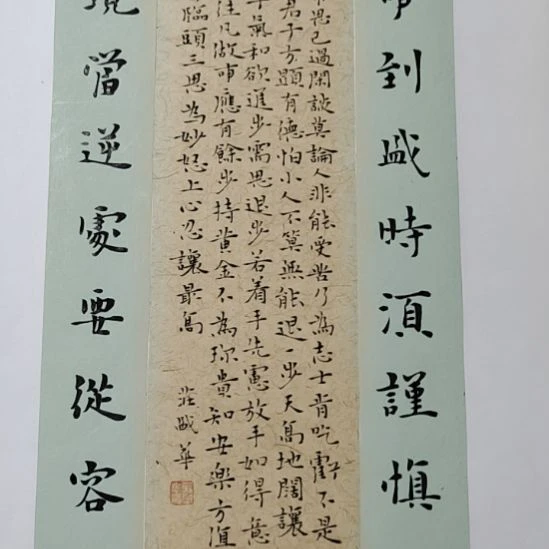 到盛時須謹慎
思己過閑談莫論人非能受苦乃為志士肯吃虧不是
君子方顯有德怕小人不算無能退一步天高地闊讓
平氣和欲進步需思退步若着手先慮放手如得意
往凡做事應有餘步持黃金不為珍貴知安樂方值
臨頭三思為妙怒上心忍讓最高
莊盛華
當逆處要從容